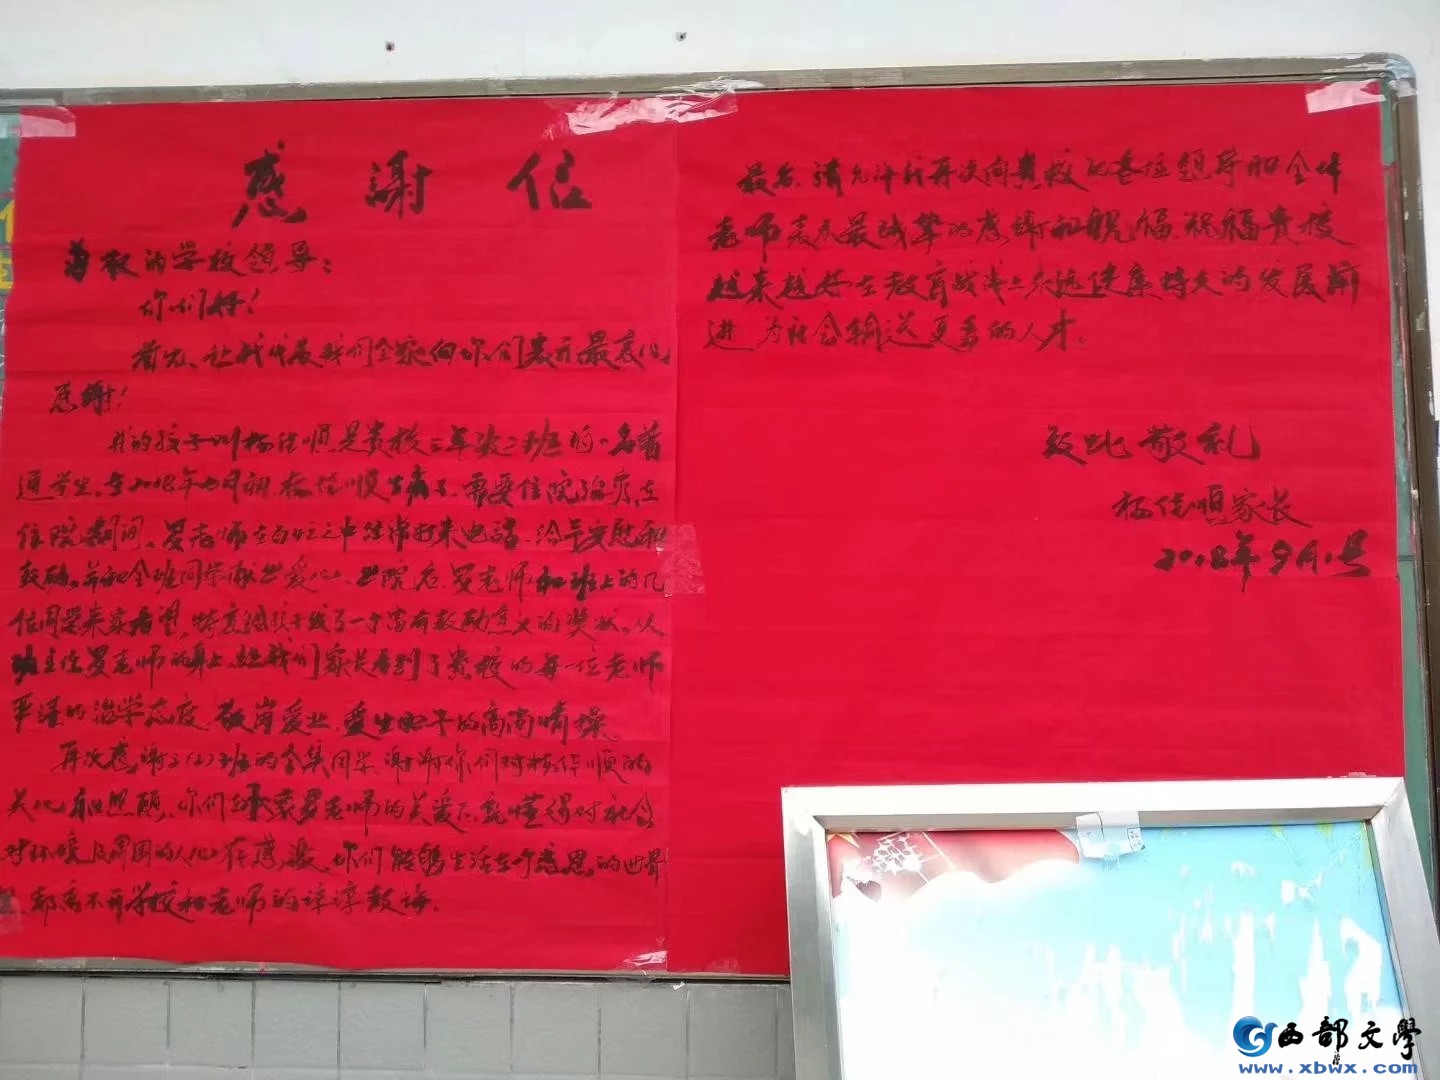 感谢信
尊敬的学校领导：
你们好！
首先，让我代表我们全家向你们表示最衷心
感谢！
我的孩子叫杨佳顺是贵校三年级二班的一名普
通学生。在2018年七月初，杨佳顺生病了，需要住院治疗，在
住院期间，罗老师在百忙之中经常打来电话，给予安慰和
鼓励。并和全班同学献出爱心，出院后，罗老师和班上的几
位同学来家看望，特意给孩子发了一个富有鼓励意义的奖状。从
班主任罗老师的身上，让我们家长看到了贵校的每一位老师
严谨的治学态度、敬岗爱业、爱生如子的高尚情操。
再次感谢三(2)班的全体同学，谢谢你们对杨佳顺的
关心和照顾，你们在罗老师的关爱下，就懂得对社会
对环境及周围的人心存感激，你们能够生活在个感恩的世界
都离不开学校和老师的谆谆教诲。
最后，请允许我再次向贵校的各位领导和全体
老师表示最诚挚的感谢和祝福，祝福贵校
越来越好在教育战线上永远健康持久的发展前
进，为社会输送更多的人才。
致此敬礼
杨佳顺家长
2018年9月1号
西部文學
www.xbwx.com